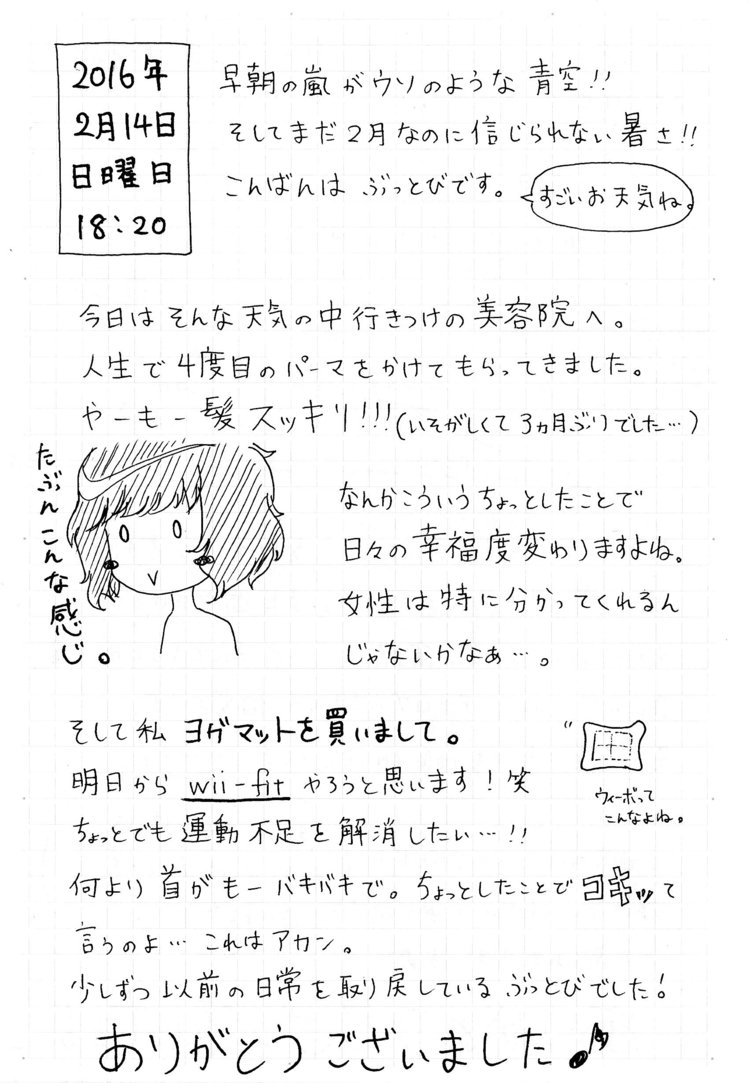 2016年
2月14日
日曜日
18:20
早朝の嵐がウソのような青空!!
そしてまだ2月なのに信じられない暑さ!!
こんばんは ぶっとびです。
すごいお天気ね。
今日はそんな天気の中行きつけの美容院へ。
人生で4度目のパーマをかけてもらってきました。
やーもー髪スッキリ!!!(いそがしくて3ヵ月ぶりでした…)
たぶんこんな感じ。
なんかこういうちょっとしたことで
日々の幸福度変わりますよね。
女性は特に分かってくれるん
じゃないかなぁ…。
そして私 ヨガマットを買いまして。
明日から wii-fit やろうと思います!笑
ウィーボって
こんなよね。
ちょっとでも運動不足を解消したい…!!
何より首がもーバキバキで。ちょっとしたことでコキッって
言うのよ… これはアカン。
少しずつ以前の日常を取り戻しているぶっとびでした!
ありがとうございました♪